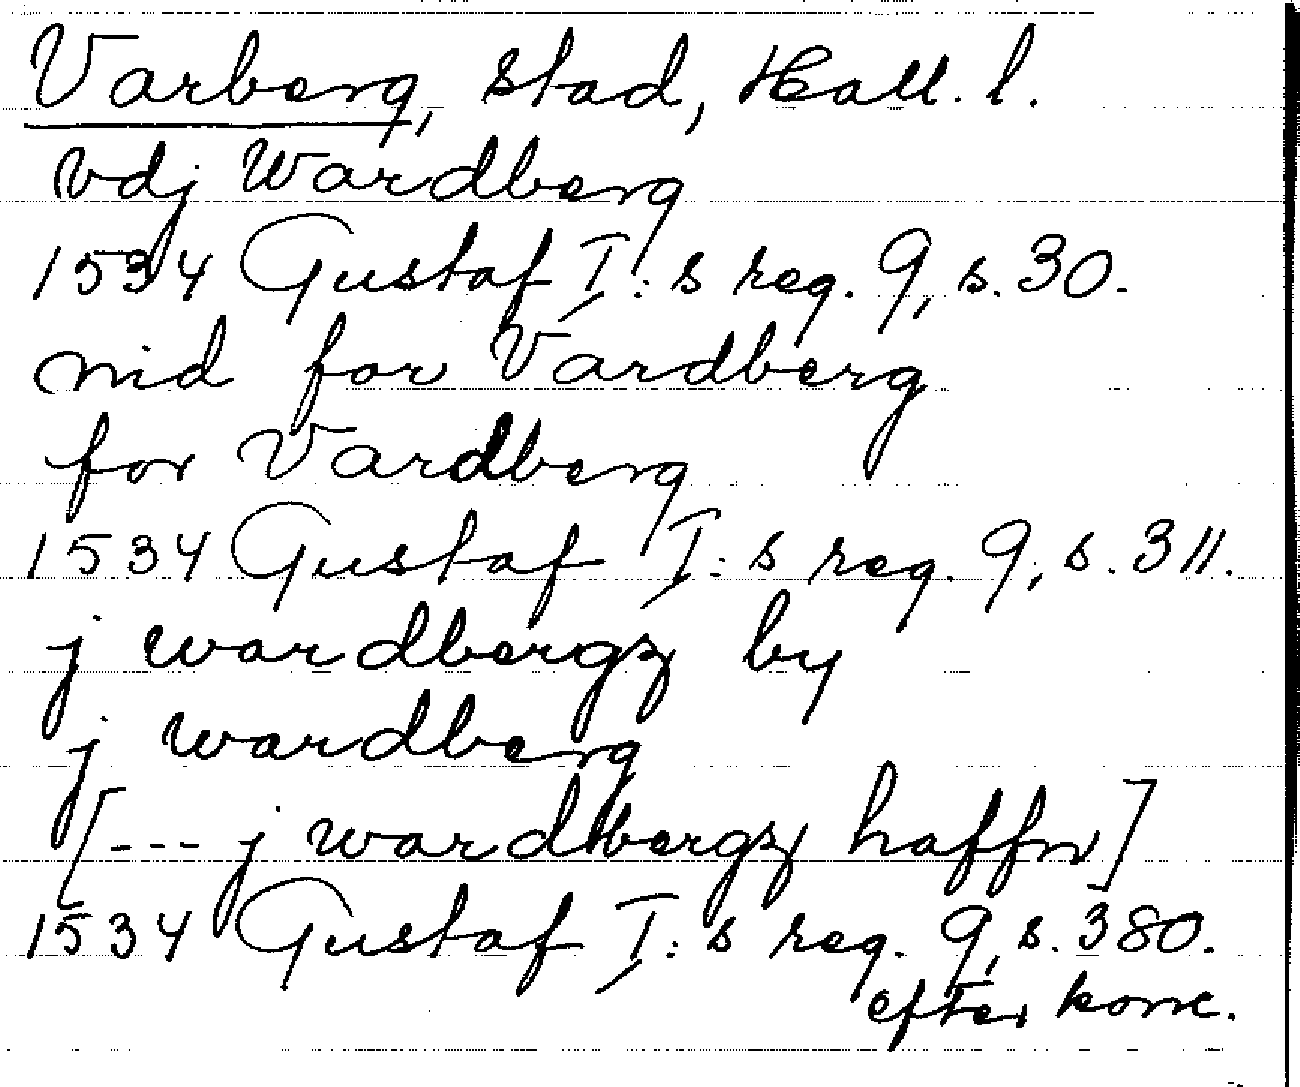 Varberg, stad, Hall. l.
vdj Wardberg
1534 Gustaf I:s reg. 9, s. 30.
nid for Vardberg
for Vardberg
1534 Gustaf I:s reg. 9, s. 311.
j wardbergz by
j wardberg
[--- j wardbergz haffn]
1534 Gustaf I:s reg. 9, s. 380.
efter konc.